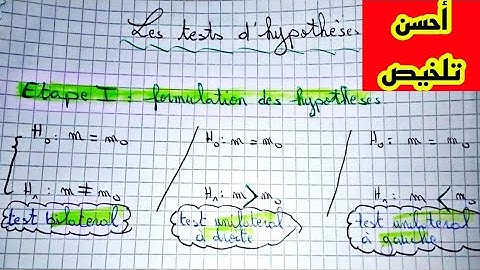 Les tests d'hypothèses
أحسن
تلخيص
Etape I : formulation des hypothèses
H₀ : m = m₀
H₁ : m ≠ m₀
test bilatéral
H₀ : m = m₀
H₁ : m > m₀
test unilatéral
à droite
H₀ : m = m₀
H₁ : m < m₀
test unilatéral
à gauche